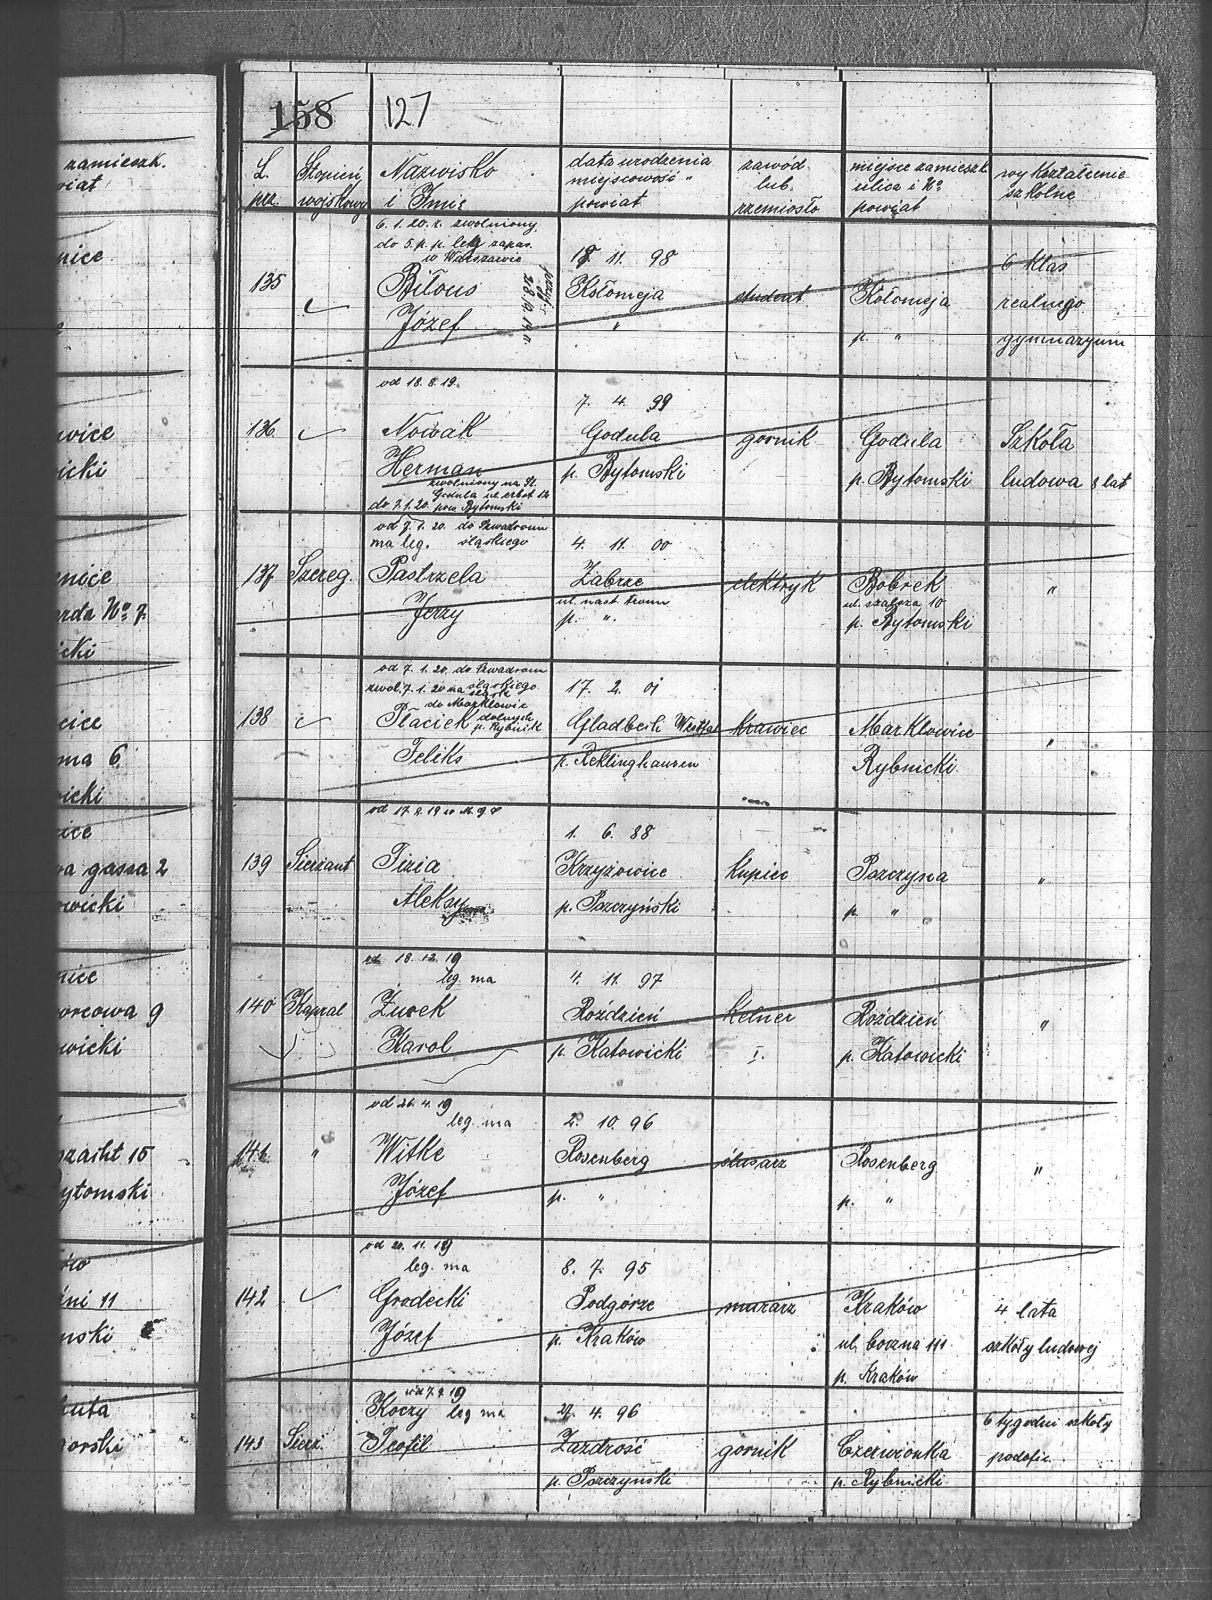 zamieszk.
wiat
nice
wice
icki
enice
rda No 7.
icki
cice
ma 6
wicki
ice
wa gassa 2
wicki
nice
orcowa 9
wicki
szacht 15
ytomski
ów
ini 11
nski
huta
gorski
158 127
L. Stopień Nazwisko data urodzenia zawód miejsce zamieszk wykształcenie
prz. wojskowy i Imię miejscowość " lub ulica i No szkolne
powiat rzemiosło powiat
6. 1. 20. r. zwolniony
do 5. p. p. leg zapas.
w Warszawie 18 11. 98 6 klas
135 Biłous Kołomeja student Kołomeja realnego
Józef " p. " gymnazyum
28/9.19.
od 18. 8. 19.
7. 4. 99
136. Nowak Godula górnik Godula Szkoła
Herman p. Bytomski p. Bytomski ludowa 8 lat
zwolniony na Śl.
Godula ul.
do 7.1.20. pow Bytomski
od 7. 1. 20. do Szwadronu
ma leg. śląskiego 4. 11. 00
137 Szereg. Pastrzela Zabrze elektryk Bobrek "
Jerzy p. ". ul. 10
p. Bytomski
od 7. 1. 20. do Szwadronu
zwol. 7. 1. 20 na śląskiego
śląsk 17. 2. 01
do Marklowic
138 Płaciek dolnych Gladbeck Westfal krawiec Marklowice "
p. Rybnik
Feliks p. Reklinghausen Rybnicki
od 17. 2. 19
1. 6. 88
139 Sierżant Fizia Krzyżowice kupiec Pszczyna "
Aleksy p. Pszczyński p. "
od 18. 12. 19
leg. ma 4. 11. 97
140 Kapral Żurek Roździeń kelner Roździeń "
Karol p. Katowicki I. p. Katowicki
od 26. 4. 19
leg. ma 2. 10. 96
141. " Witke Rosenberg ślusarz Rosenberg "
Józef p. " p. "
od 20. 11. 19
leg. ma 8. 7. 95
142 Grodecki Podgórze murarz Kraków 4 lata
Józef p. Kraków ul. boczna 111 szkoły ludowej
p. Kraków
od 7. 2. 19
Koczy leg ma 27. 4. 96 6 tygodni szkoły
143 Sierż. Teofil Zazdrość górnik Czerwionka podofic.
p. Pszczyński p. Rybnicki